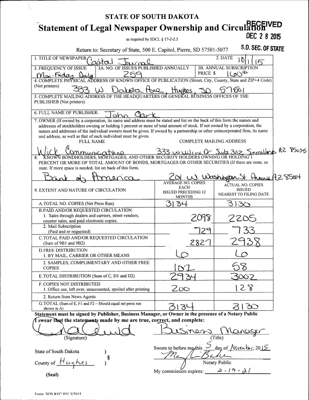 STATE OF SOUTH DAKOTA
Statement of Legal Newspaper Ownership and Circulation
RECEIVED
DEC 28 2015
S.D. SEC. OF STATE
as required by SDCL § 17-2-2.5
Return to: Secretary of State, 500 E. Capitol, Pierre, SD 57501-5077
1. TITLE OF NEWSPAPER Capital Journal
2. DATE 10/1/15
3. FREQUENCY OF ISSUE Mon-Friday Daily
3A. NO. OF ISSUES PUBLISHED ANNUALLY 259
3B. ANNUAL SUBSCRIPTION PRICE $
4. COMPLETE MAILING ADDRESS OF KNOWN OFFICE OF PUBLICATION (Street, City, County, State and ZIP+4 Code) (Not printers)
333 W Dakota Ave, Hughes SD 57501
5. COMPLETE MAILING ADDRESS OF THE HEADQUARTERS OR GENERAL BUSINESS OFFICES OF THE PUBLISHER (Not printers)
6. FULL NAME OF PUBLISHER: John Clark
7. OWNER (If owned by a corporation, its name and address must be stated and list on the back of this form the names and addresses of stockholders owning or holding 1 percent or more of total amount of stock. If not owned by a corporation, the names and addresses of the individual owners must be given. If owned by a partnership or other unincorporated firm, its name and address, as well as that of each individual must be given.
FULL NAME
COMPLETE MAILING ADDRESS
Wick Communications 333 W Wilcox Dr Suite 302 AZ 85635
8. KNOWN BONDHOLDERS, MORTGAGEES, AND OTHER SECURITY HOLDERS OWNING OR HOLDING 1 PERCENT OR MORE OF TOTAL AMOUNT OF BONDS, MORTGAGES OR OTHER SECURITIES (If there are none, so state. If more space is needed, list on back of this form.
Bank of America 201 W Washington St AZ
9. EXTENT AND NATURE OF CIRCULATION
AVERAGE NO. COPIES EACH ISSUED PRECEDING 12 MONTHS
ACTUAL NO. COPIES ISSUED NEAREST TO FILING DATE
A. TOTAL NO. COPIES (Net Press Run) 3134 3130
B. PAID AND/OR REQUESTED CIRCULATION
1. Sales through dealers and carriers, street vendors, counter sales, and paid electronic copies. 2098 2205
2. Mail Subscription (Paid and or requested) 729 733
C. TOTAL PAID AND/OR REQUESTED CIRCULATION (Sum of 9B1 and 9B2) 2827 2938
D. FREE DISTRIBUTION
1. BY MAIL, CARRIER OR OTHER MEANS 6 6
2. SAMPLES, COMPLIMENTARY AND OTHER FREE COPIES 102 58
E. TOTAL DISTRIBUTION (Sum of C, D1 and D2) 2934 3002
F. COPIES NOT DISTRIBUTED
1. Office use, left over, unaccounted, spoiled after printing 200 128
2. Return from News Agents
G. TOTAL (Sum of E, F1 and F2 - Should equal net press run shown in A) 3134 3130
Statement must be signed by Publisher, Business Manager, or Owner in the presence of a Notary Public
I swear that the statements made by me are true, correct, and complete:
Business Manager
(Signature) (Title)
State of South Dakota )
Sworn to before me this 5 day of November, 2015
County of Hughes )
Notary Public
(Seal)
My commission expires: 2-19-21